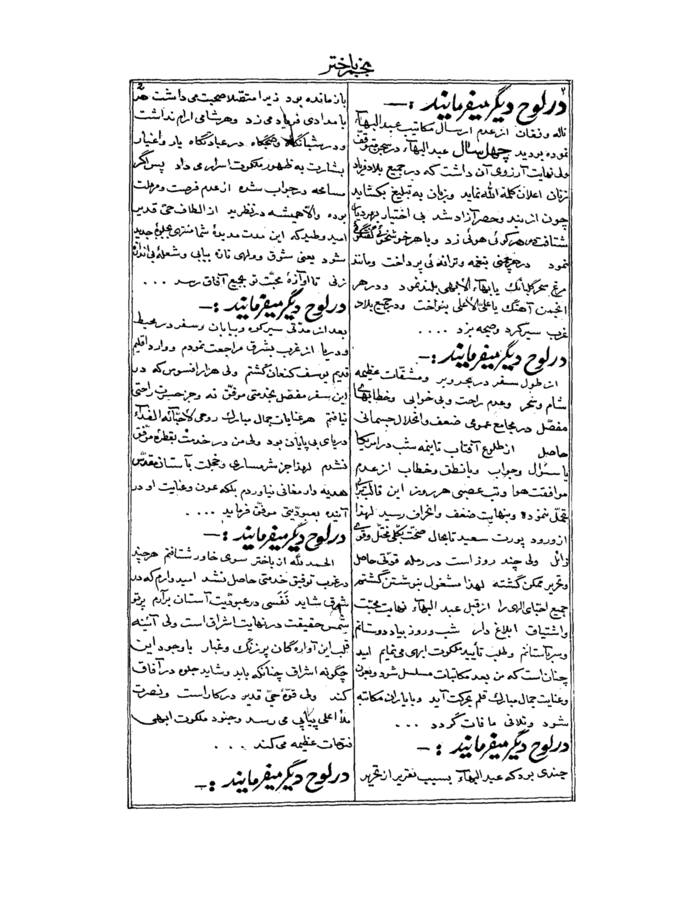 نجم باختر
۲
در لوح دیگر میفرمایند :—
ناله و فغان از عدم ارسال مکاتیب عبدالبهآء
نموده بودید چهل سال عبدالبهآء در سجن متوقف
ولی نهایت آرزوی آن داشت که در جمیع بلاد فریاد
زنان اعلان کلمة الله نماید و زبان به تبلیغ بگشاید
چون از بند و حصر آزاد شد بی اختیار
شتافت در هر کوئی هوئی زد و با هر خوشخوئی گفتگوئی
نمود در هر چمنی بنغمه و ترانه ئی پرداخت و مانند
مرغ سحر گلبانگ یا بهآء الابهی بلند نمود و در هر
انجمن آهنگ یا علی الاعلی بنواخت و در جمیع بلاد
غرب سیر کرد و صیحه بزد ....
در لوح دیگر میفرمایند :—
از طول سفر در بحر و بر و مشقات عظیمه
شام و سحر و عدم راحت و بی خوابی و خطابهای
مفصل در مجامع عمومی ضعف و انحلال جسمانی
حاصل از طلوع آفتاب تا نیمه شب در امریکا
یا سئوال و جواب و یا نطق و خطاب از عدم
موافقت هوا و تب عصبی هر روز این قالب
تحمّل ننموده و بنهایت ضعف و انحراف رسید لهذا
از ورود پورت سعید تا بحال صحّت بکلّی مختل و قوی
زائل ولی چند روز است در رمله قوّتی حاصل
و تحریر ممکن گشته لهذا مشغول بنوشتن گشتم
جمیع احبّای الهی را از قبل عبدالبهآء نهایت محبّت
و اشتیاق ابلاغ دار شب و روز بیاد دوستانم
و سر بآستانم و طلب تأیید ملکوت ابهی می نمایم امید
چنان است که من بعد مکاتبات مسلسل شود و بعون
و عنایت جمال مبارک قلم بحرکت آید و با یاران مکاتبه
شود و تلافی ما فات گردد ...
در لوح دیگر میفرمایند :—
چندی بود که عبدالبهآء بسبب تقریر از تحریر
باز مانده بود زیرا متصلاً صحبت می داشت
بامدادی فریاد می زد و هر شامی آرام نداشت
و در شبانگاه و صبحگاه در عبادتگاه یار و اغیار
بشارت به ظهور ملکوت اسرار می داد پس اگر
مسامحه در جواب شده از عدم فرصت و مهلت
بوده والّا همیشه در نظرید از الطاف حیّ قدیر
امیدوارم که این مدت مدیدهٔ شما منتهی بجلوهٔ جدید
شود یعنی شوق و ولهی تازه بیابی و شعلهٔ بی اندازه
زنی تا آوازهٔ محبّت تو بجمیع آفاق رسد ...
در لوح دیگر میفرمایند :—
بعد از مدّتی سیر کوه و بیابان و سفر در محیط
و دریا از غرب بشرق مراجعت نمودم و وارد اقلیم
قدیم یوسف کنعان گشتم ولی هزار افسوس که در
این سفر مفصّل بخدمتی موفّق نه و جز حسرت راحتی
نیافتم هر عنایات جمال مبارک روحی لاحبّائه الفداء
دریای بی پایان بود ولی من در خدمت بقطرهٔ موفّق
نشدم لهذا جز شرمساری و خجلت بآستان مقدّس
هدیه و ارمغانی نیاوردم بلکه عون و عنایت او در
آینده بعبودیّتی موفّق فرماید ....
در لوح دیگر میفرمایند :—
الحمد لله از باختر سوی خاور شتافتم هر چند
در غرب توفیق خدمتی حاصل نشد امیدوارم که در
شرق شاید نَفَسی در عبودیّت آستان برآرم پرتو
شمس حقیقت در نهایت اشراق است ولی آئینه
قلب این آواره گان پر زنگ و غبار با وجود این
چگونه اشراق چنانکه باید و شاید جلوه در آفاق
کند ولی قوّهٔ حیّ قدیر در کار است و نصرت
ملأ اعلی پیاپی می رسد و جنود ملکوت ابهی
فتوحات عظیمه می کند ...
در لوح دیگر میفرمایند :—